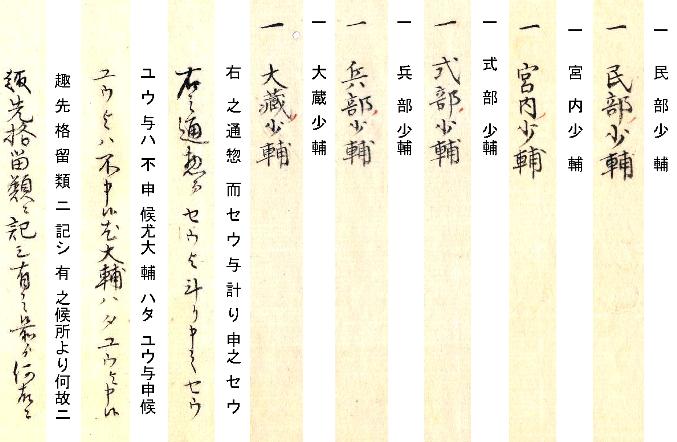 一 民部少輔
一 民部少輔
一 宮内少輔
一 宮内少輔
一 式部少輔
一 式部少輔
一 兵部少輔
一 兵部少輔
一 大蔵少輔
一 大藏少輔
右之通惣而セウ与計り申之セウ
右之通惣而セウ与斗り申之セウ
ユウ与ハ不申候尤大輔ハタユウ与申候
ユウ与ハ不申候尤大輔ハタユウ与申候
趣先格留類ニ記シ有之候所より何故ニ
趣先格留類ニ記シ有之候所より何故ニ